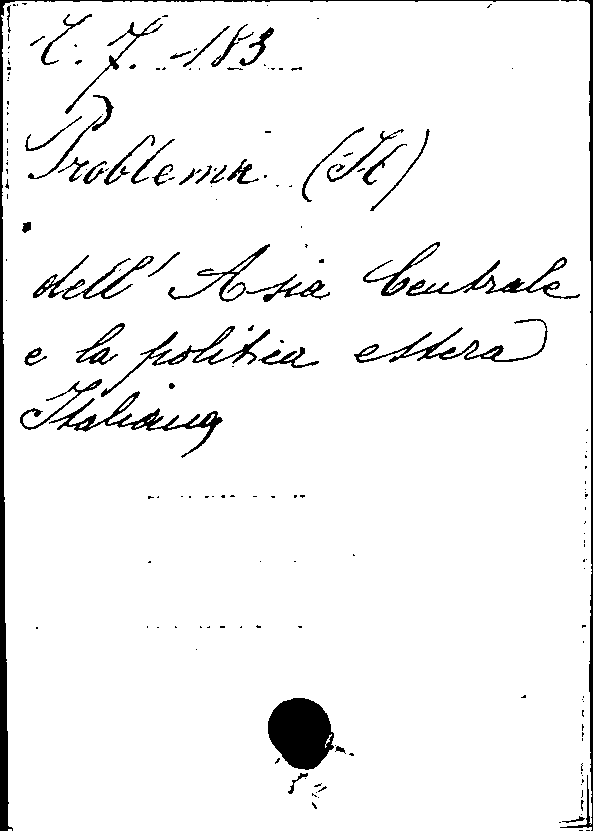 C. 7. 183
Problema (Il)
dell' Asia Centrale
e la politica estera
Italiana